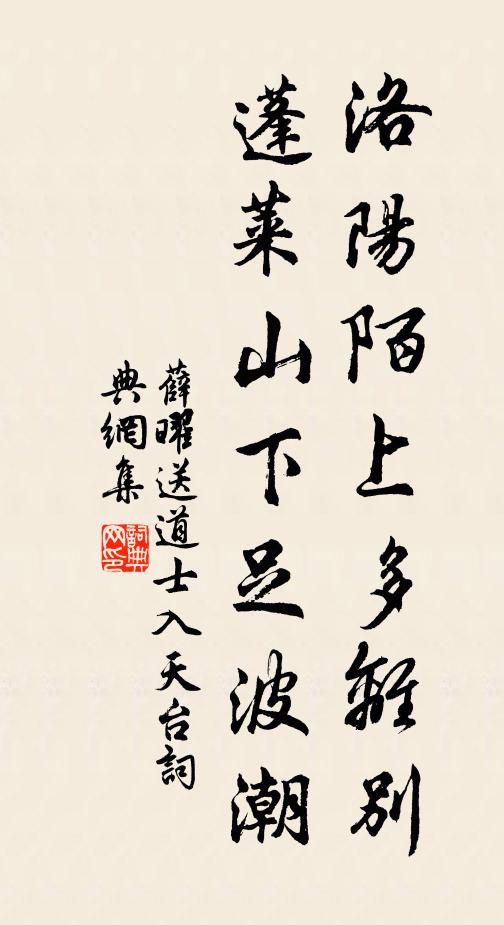 洛陽陌上多離別
蓬萊山下足波潮
薛曜送道士入天台詞
典網集
詞典网印